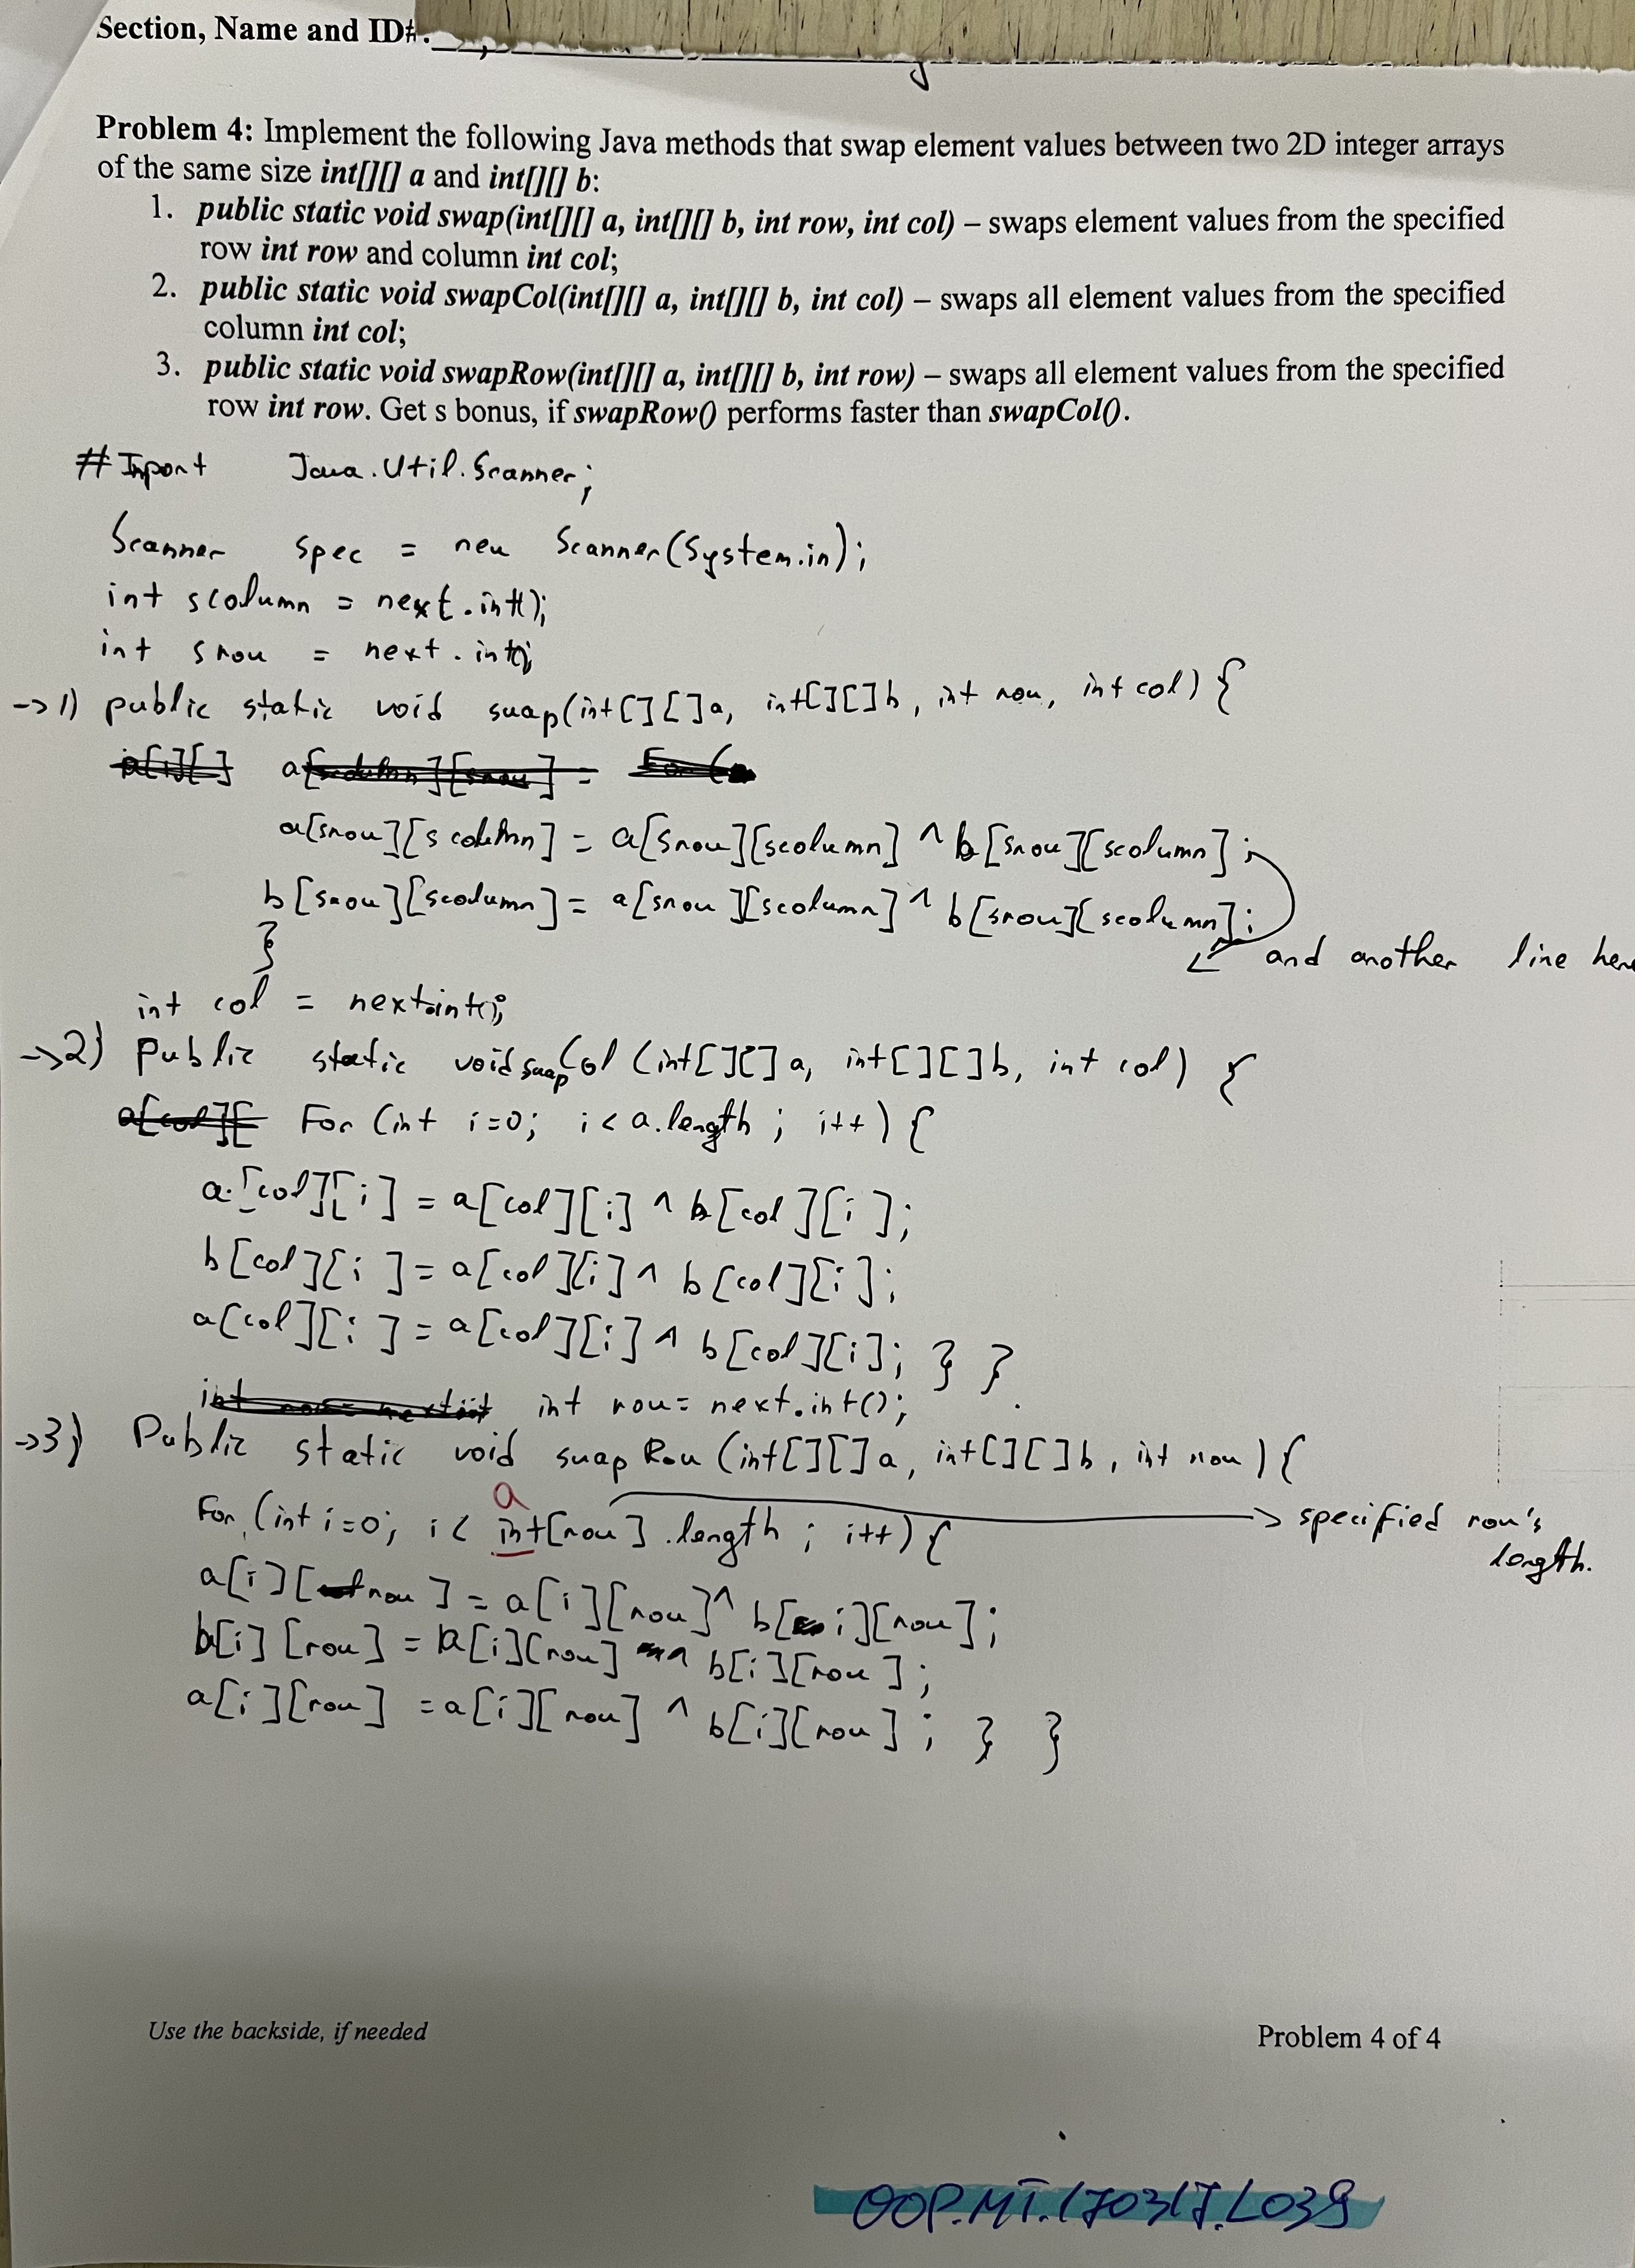 Section, Name and ID#.
Problem 4: Implement the following Java methods that swap element values between two 2D integer arrays
of the same size int[][] a and int[][] b:
1. public static void swap(int[][] a, int[][] b, int row, int col) – swaps element values from the specified
row int row and column int col;
2. public static void swapCol(int[][] a, int[][] b, int col) – swaps all element values from the specified
column int col;
3. public static void swapRow(int[][] a, int[][] b, int row) – swaps all element values from the specified
row int row. Get s bonus, if swapRow() performs faster than swapCol().
# Import Java.Util.Scanner;
Scanner spec = new Scanner(System.in);
int scolumn = next.int();
int srow = next.int();
-> 1) public static void swap(int[][]a, int[][]b, int row, int col) {
a[srow][scolumn] = a[srow][scolumn] ^ b[srow][scolumn];
b[srow][scolumn] = a[srow][scolumn] ^ b[srow][scolumn];
} and another line here
int col = next.int();
-> 2) public static void swapCol (int[][]a, int[][]b, int col) {
For (int i=0; i < a.length ; i++) {
a[col][i] = a[col][i] ^ b[col][i];
b[col][i] = a[col][i] ^ b[col][i];
a[col][i] = a[col][i] ^ b[col][i]; } }
int row = next.int();
-> 3) Public static void swapRow (int[][]a, int[][]b, int row) {
a
For (int i=0; i < int[row].length ; i++) { -> specified row's
length.
a[i][row] = a[i][row] ^ b[i][row];
b[i][row] = a[i][row] ^ b[i][row];
a[i][row] = a[i][row] ^ b[i][row]; } }
Use the backside, if needed
Problem 4 of 4
OOP.MT.170317.L039